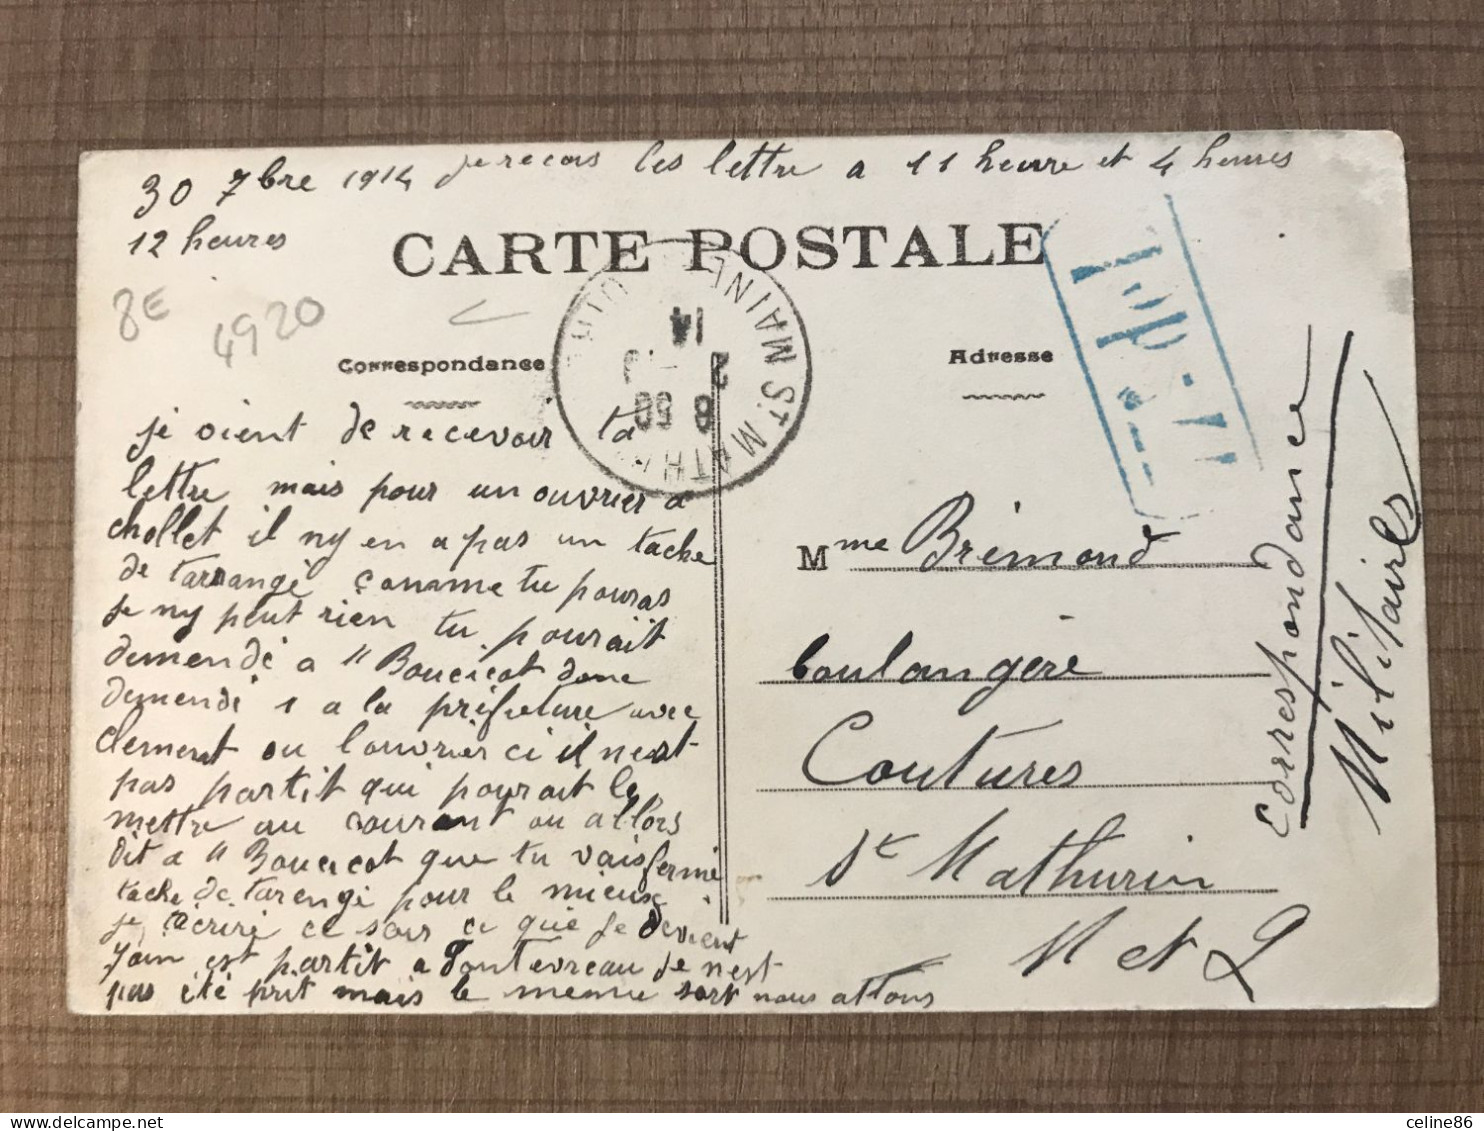 30 7bre 1914 je recois les lettre a 11 heure et 4 heures
12 heures
CARTE POSTALE
8E
4920
Correspondance
Adresse
MAINE
ST MATH
14
2
8 50
je vient de recevoir ta
lettre mais pour un ouvrier a
chollet il ny en a pas un tache
de tarrangé comme tu pouras
je ny peut rien tu pourait
demendé a " Boucicot donc
demendé 1 a la prifeture avec
clement ou l'ouvrier ci il nest
pas partit qui pourait le
mettre au courant ou allors
dit a " Boucicot que tu vais fermé
tache de tarengé pour le mieux
je tacriré ce soir ce que je devient
est partit a Fontevreau je nest
pas été prit mais le meme sort nous attous
Mme Brémond
boulangère
Coutures
St Mathurin
M et L
Correspondance
Militaires
PP
celine86